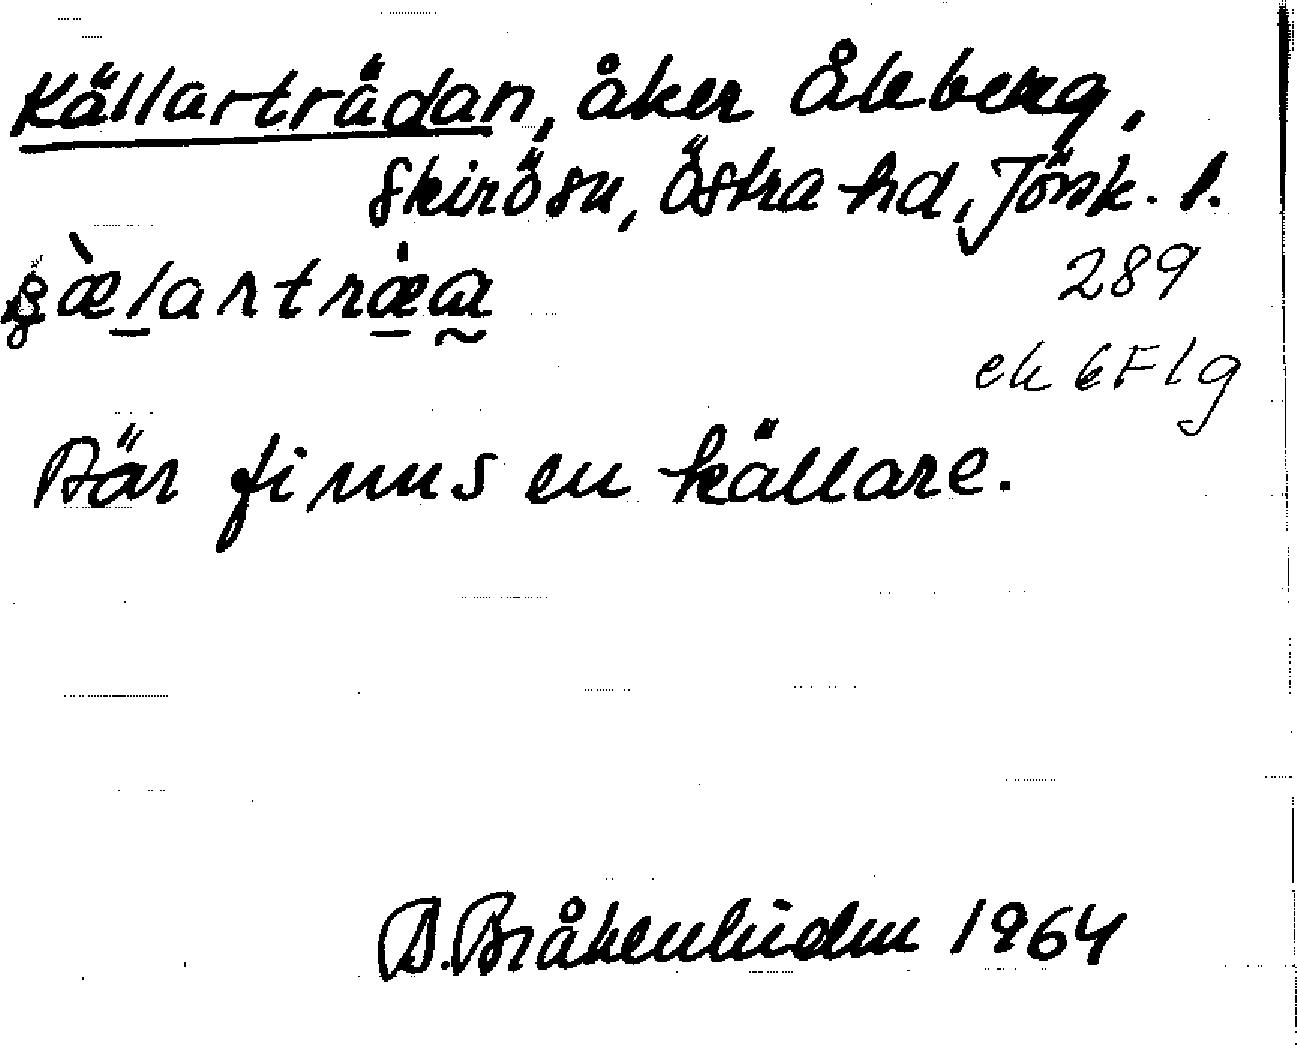 Källarträdan, åker Åkeberg,
Skirösn, Östra hd, Jönk. l.
289
ek 6F1g
Där finns en källare.
D. Bråkenhielm 1964